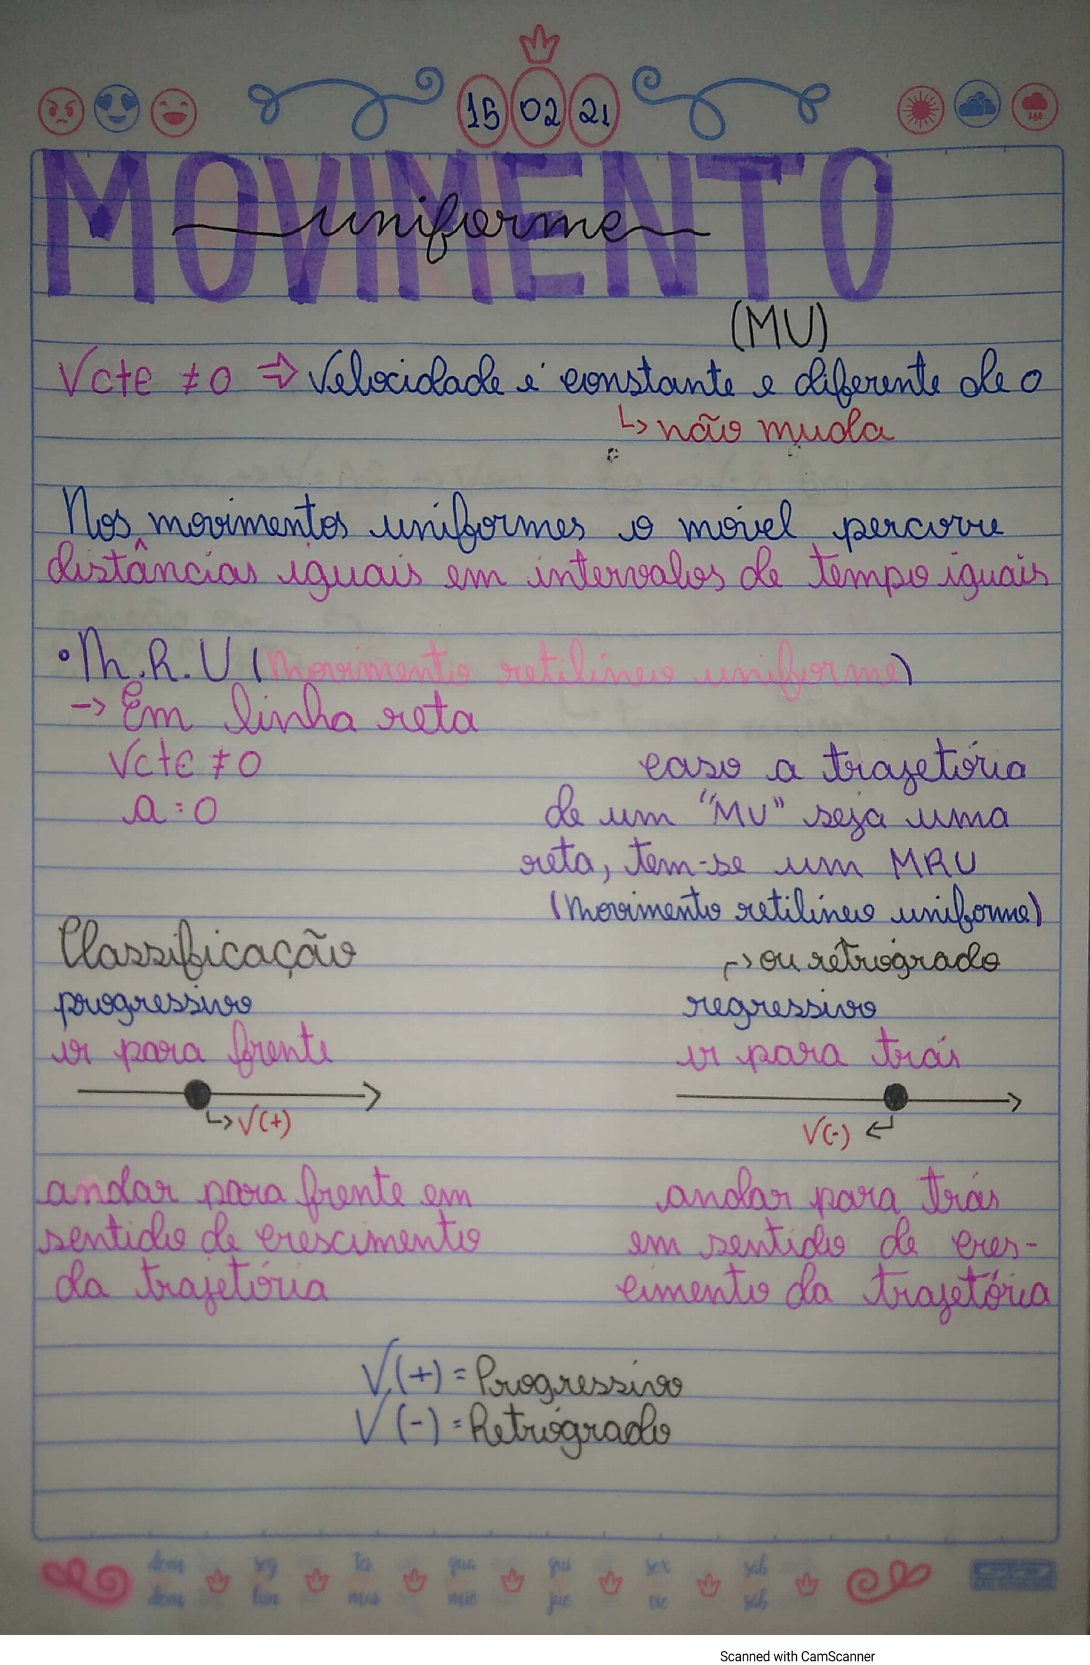 15 02 21
MOVIMENTO
uniforme
(MU)
Vcte ≠ 0 ⇒ Velocidade é constante e diferente de 0
↳ não muda
Nos movimentos uniformes o móvel percorre
distâncias iguais em intervalos de tempo iguais
• M.R.U (Movimento retilíneo uniforme)
→ Em linha reta
Vcte ≠ 0
a = 0
caso a trajetória
de um "MU" seja uma
reta, tem-se um MRU
(Movimento retilíneo uniforme)
Classificação
progressivo
ir para frente
↳ V(+)
andar para frente em
sentido de crescimento
da trajetória
↱ ou retrógrado
regressivo
ir para trás
V(-) ↵
andar para trás
em sentido de cres-
cimento da trajetória
V(+) = Progressivo
V(-) = Retrógrado
dom seg ter qua qui sex sáb
dom lun mar mié jue vie sáb
Scanned with CamScanner